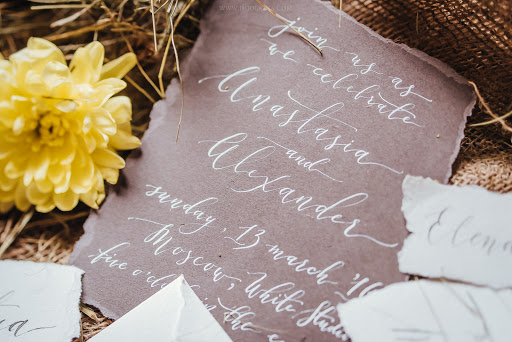 join us as
we celebrate
Anastasia
and
Alexander
sunday, 13 march
Moscow, White
five o'clock in the
Elena